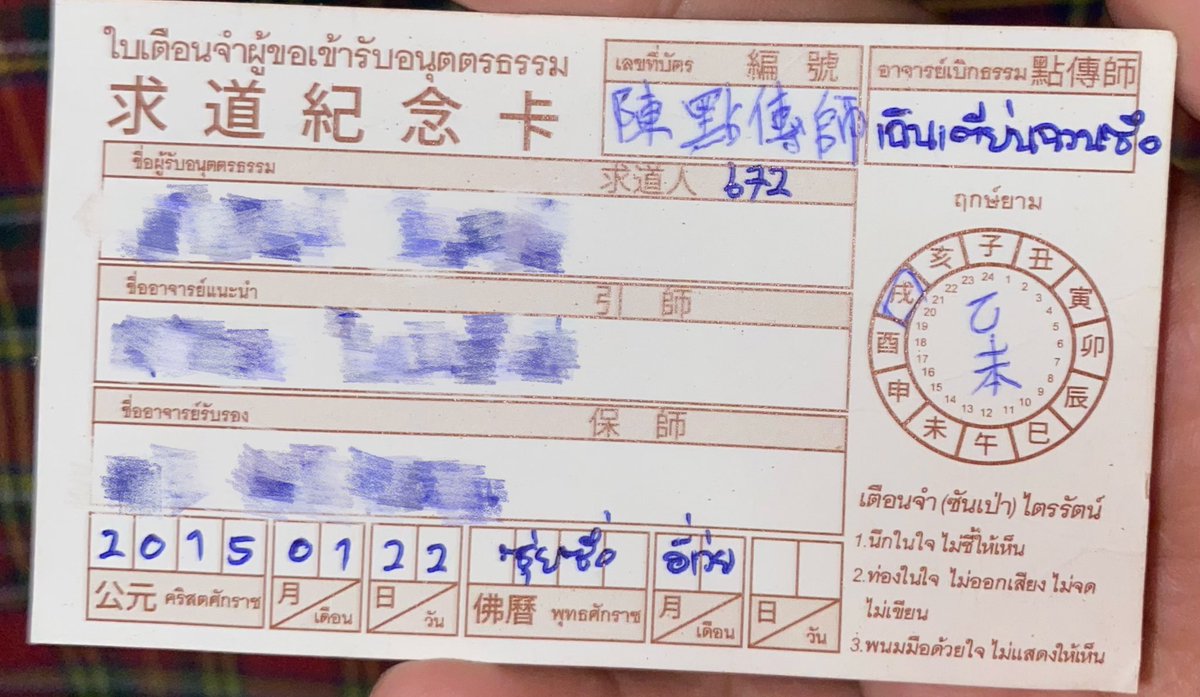 ใบเตือนจำผู้ขอเข้ารับอนุตตรธรรม
求道紀念卡
เลขที่บัตร 編號
陳點傳師
อาจารย์เบิกธรรม 點傳師
เฉินเตี่ยนฉวนซือ
ชื่อผู้รับอนุตตรธรรม 求道人 672
ชื่ออาจารย์แนะนำ 引師
ชื่ออาจารย์รับรอง 保師
2015 01 22
公元 คริสตศักราช 月 เดือน 日 วัน 佛曆 พุทธศักราช 月 เดือน 日 วัน
ฤกษ์ยาม
子 丑 寅 卯 辰 巳 午 未 申 酉 戌 亥
24 1 2 3 4 5 6 7 8 9 10 11 12 13 14 15 16 17 18 19 20 21 22 23
乙未
เตือนจำ (ซันเป่า) ไตรรัตน์
1.นึกในใจ ไม่ชี้ให้เห็น
2.ท่องในใจ ไม่ออกเสียง ไม่จด
ไม่เขียน
3.พนมมือด้วยใจ ไม่แสดงให้เห็น